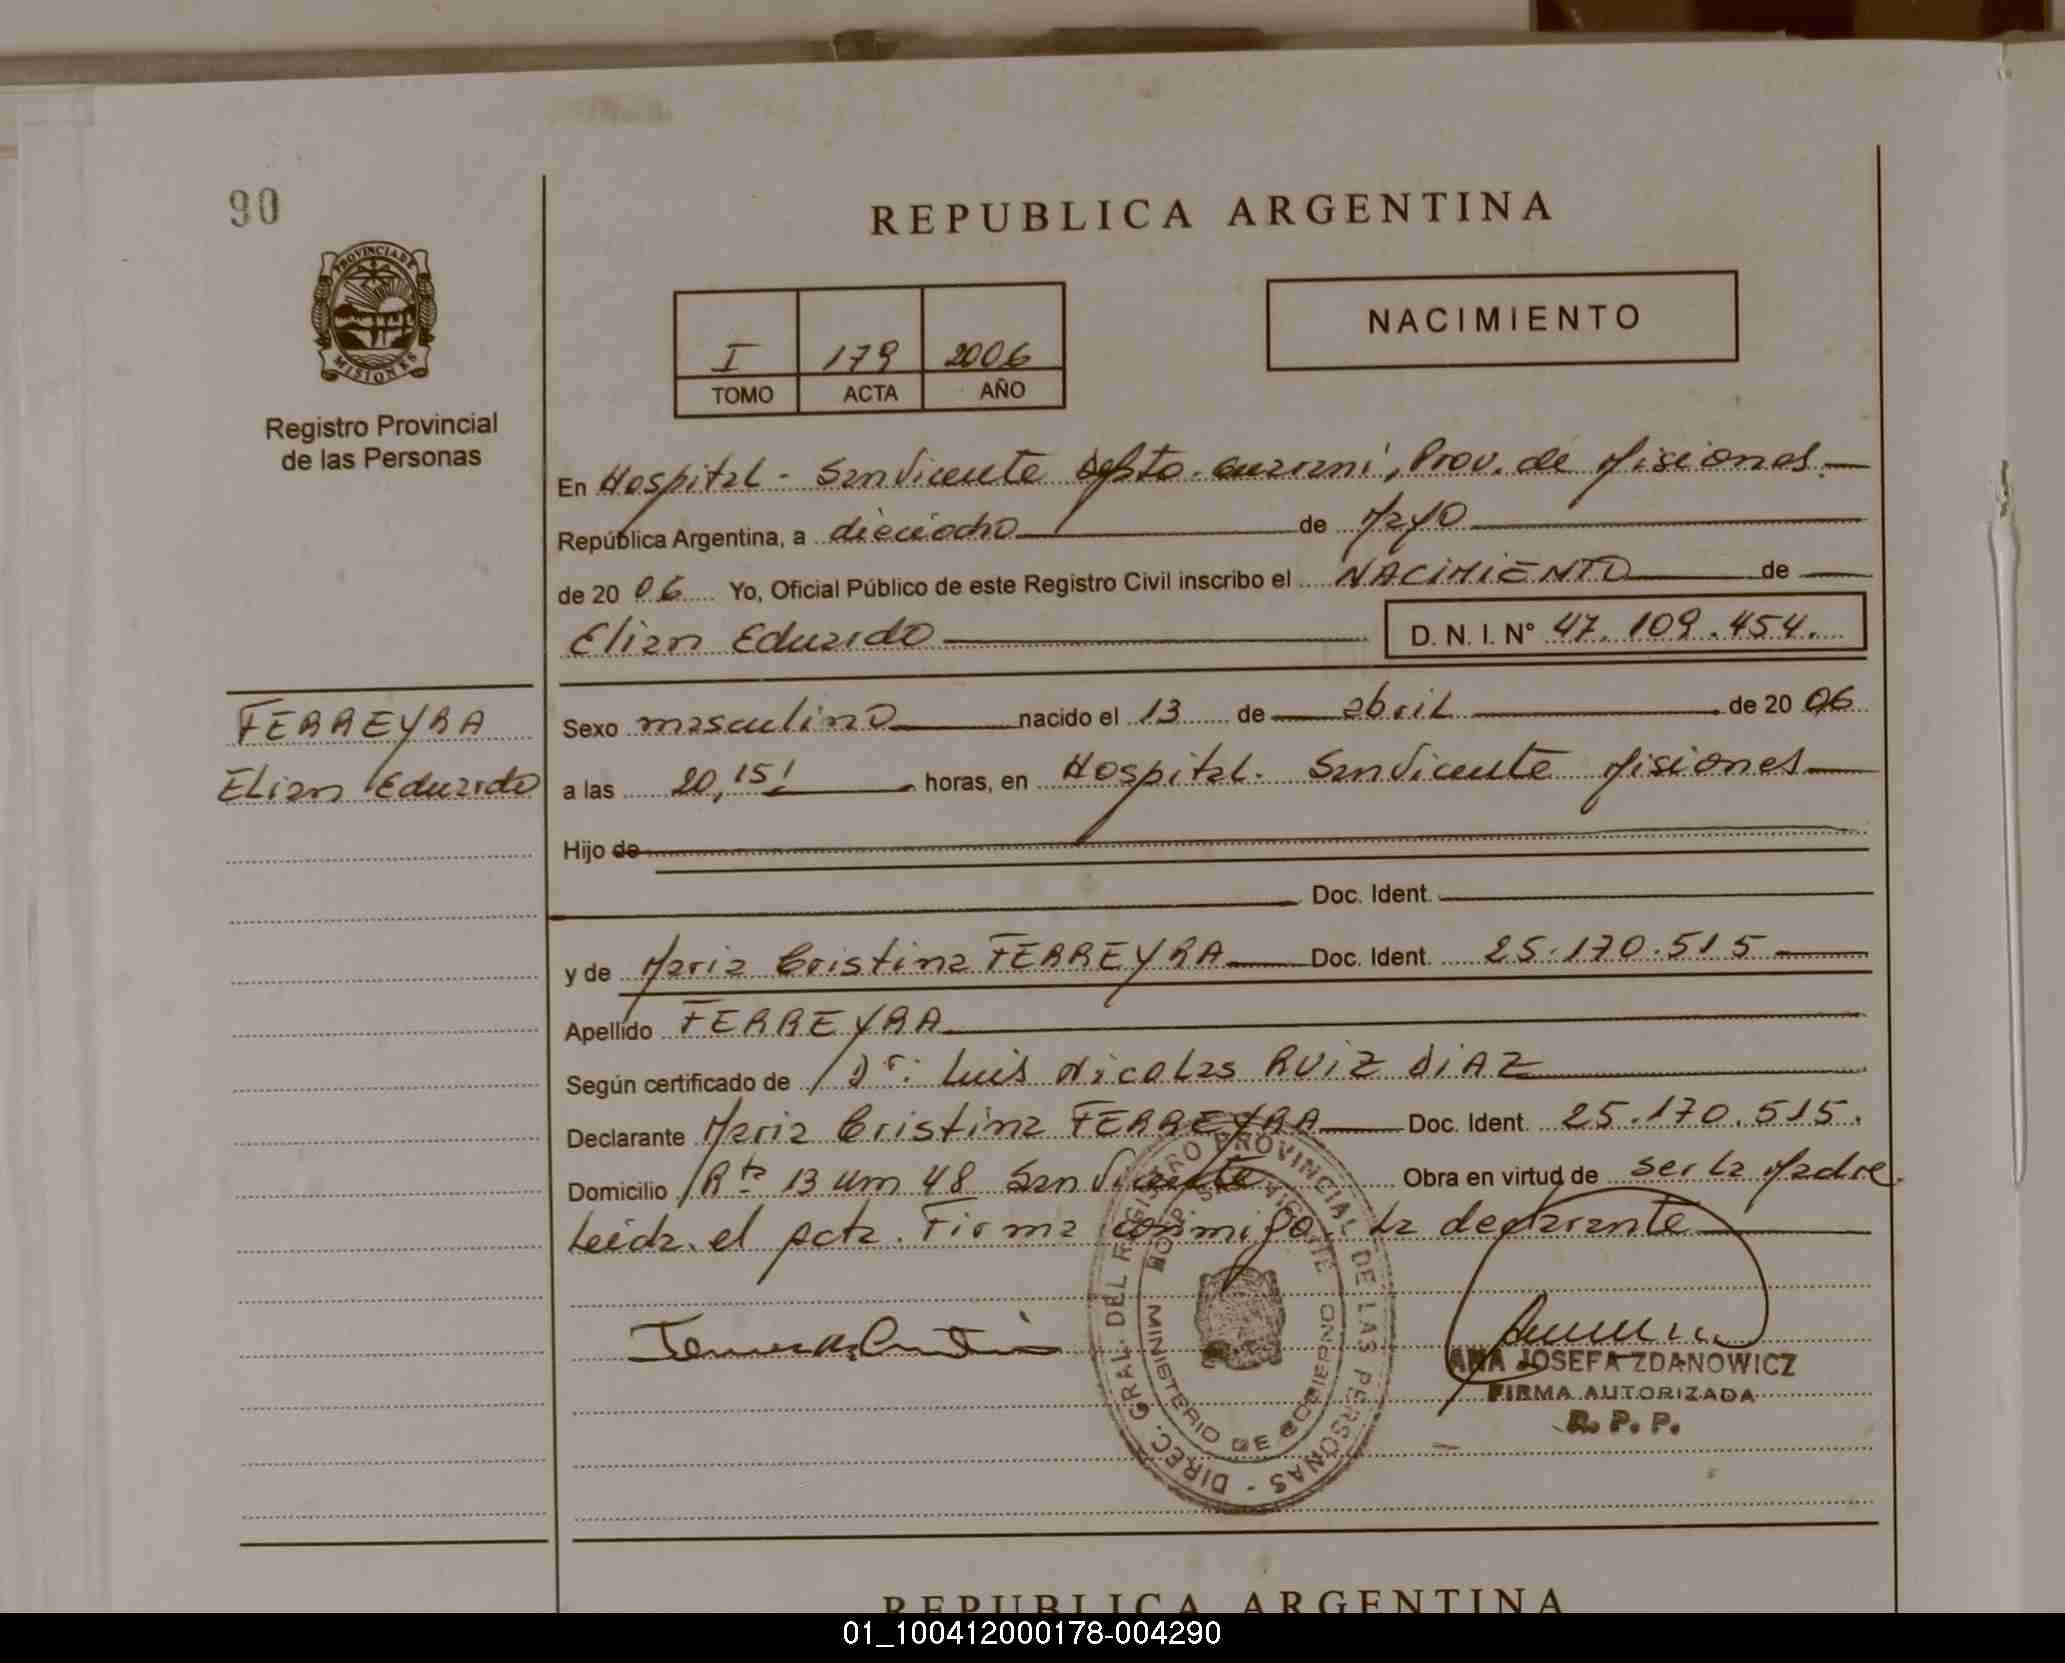 90
REPUBLICA ARGENTINA
PROVINCIA DE
MISIONES
Registro Provincial
de las Personas
I 179 2006
TOMO ACTA AÑO
NACIMIENTO
En Hospital - San Vicente Dpto. Guarani, Prov. de Misiones.
República Argentina, a dieciocho de Mayo
de 20 06 Yo, Oficial Público de este Registro Civil inscribo el NACIMIENTO de
Elian Eduardo D. N. I. N° 47.109.454.
FERREYRA
Elian Eduardo
Sexo masculino nacido el 13 de abril de 20 06
a las 20,15! horas, en Hospital. San Vicente Misiones
Hijo de
Doc. Ident.
y de Maria Cristina FERREYRA Doc. Ident. 25.170.515
Apellido FERREYRA
Según certificado de Dr. Luis Nicolas RUIZ DIAZ
Declarante Maria Cristina FERREYRA Doc. Ident. 25.170.515.
Domicilio Rta 13 Km 48 San Vicente Obra en virtud de ser la Madre
Leida el acta. Firma conmigo la declarante
DIREC. GRAL. DEL REGISTRO PROVINCIAL DE LAS PERSONAS -
HOSP. SAN VICENTE
MINISTERIO DE GOBIERNO
ANA JOSEFA ZDANOWICZ
FIRMA AUTORIZADA
R. P. P.
REPUBLICA ARGENTINA
01_100412000178-004290